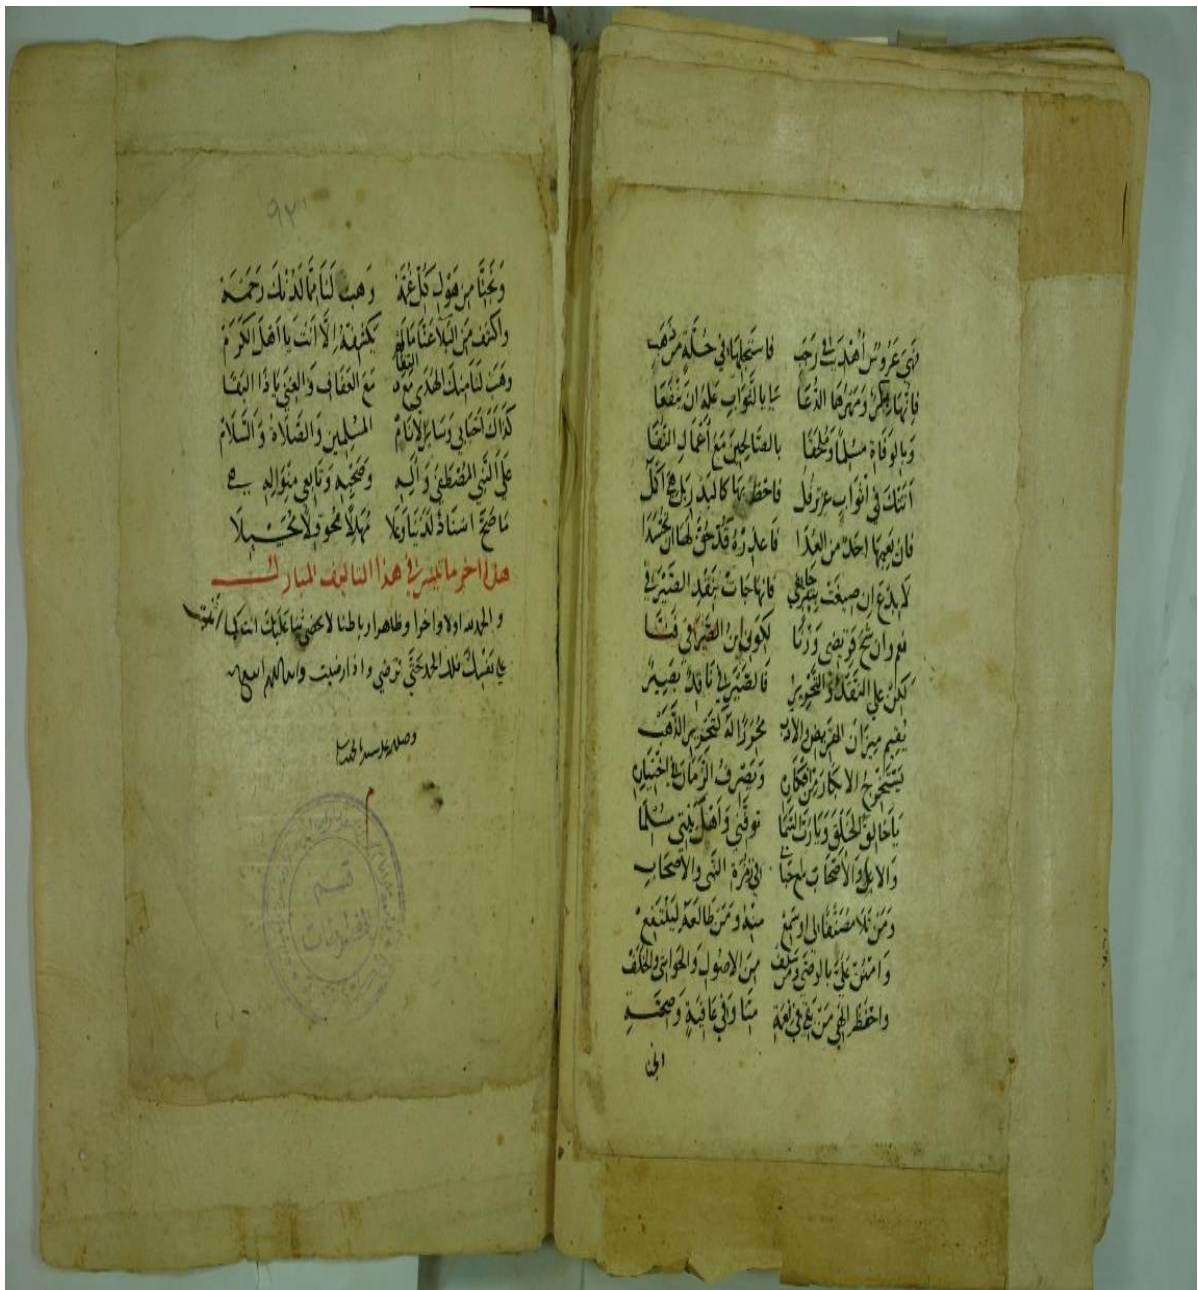 فهي عروس أهديت في رجب فاستجلها في حلة من ذهب
فإنها بكر ومهرها الدعا يا بالثواب عله ان ينفعا
وبالوفاة مسلما وملحقا بالصالحين مع أعمال التقا
اتتك في اثواب عز ترفل فاحظ بها كالبدر بل هي اكمل
فان يعبها احد من العدا فاعذره قد حق لها ان تحسدا
لا بدع ان صيغت فانها جات بنقد الصيرفي
نعم وان شح قريضي وزنا لكوني ابن الصيرفي فنا
لكن على النقد والتحرير فالصيرفي ناقد بصير
يقيم ميزان القريض والادب محررا له كتحرير الذهب
يستخرج الابكار من افكاره وتصرف الزمان في اختياره
يا خالق الخلق وبارئ السما توفني وأهل بيتي مسلما
والال والاصحاب مع في زمرة النبي والاصحاب
ومن تلا مصنفا لي او سمع منه ومن طالعه لينتفع
وامنن علي بالرضى ومن سلف من الاصول والحواشي والخلف
واحفظ الهي من بقي في نعمة منا وفي عافية وصحة
ونجنا من هول كل غمة وهب لنا مما لدنك رحمة
واكشف من البلا عنا مالم يكشفه إلا أنت يا اهل الكرم
وهب لنا منك الهدى مع التقا مع العفاف والغنى يا ذا البقا
كذاك احبابي وسائر الانام المسلمين والصلاة والسلام
على النبي المصطفى وآله وصحبه وتابعي منواله
ما صح اسناد لدنيا وعلا مهلا محوقلا محسبلا
هذا اخر ما تيسر في هذا التاليف المبارك
والحمد لله اولا واخرا وظاهرا وباطنا لا نحصي ثنا عليك انت كما اثنيت
على نفسك فلك الحمد حتى ترضى واذا رضيت
وصلى الله على سيدنا محمد
م
قسم
المخطوطات